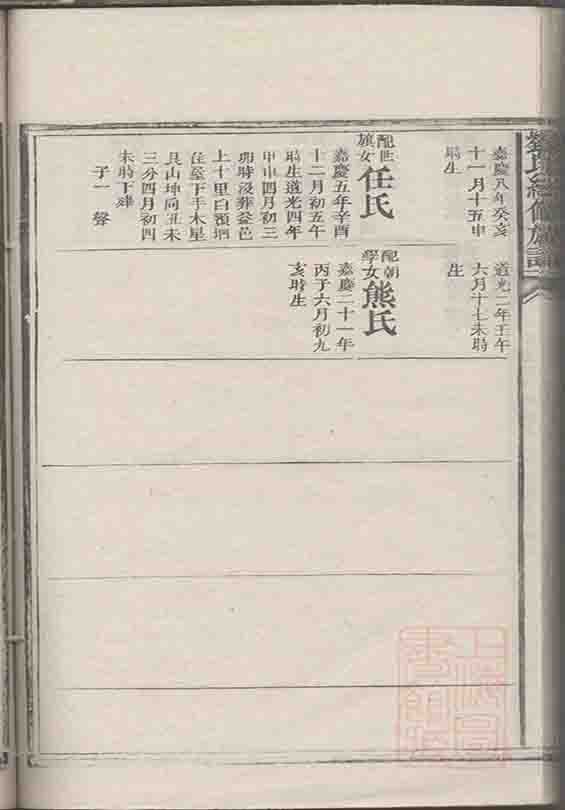 嘉慶八年癸亥
十一月十五申
時生
配世
繽女
任氏
嘉慶五年辛酉
十二月初五午
時生道光四年
甲申四月初三
卯時歿葬益邑
上十里白
在墓下手木星
艮山坤向丑未
三分四月初四
未時下肂
子一 聲
道光二年壬午
六月十七未時
生
配朝
學女
熊氏
嘉慶二十一年
丙子六月初九
亥時生
上海圖
書館藏